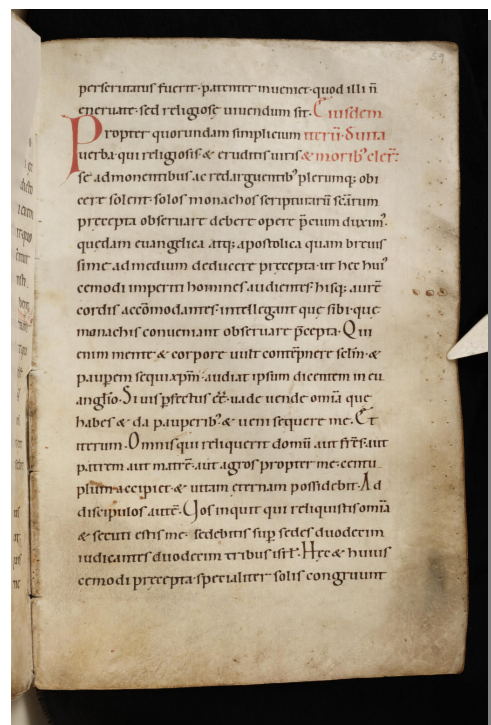 59
perscrutatus fuerit· patenter inueniet· quod illi n̄
eneruate· sed religiosę uiuendum sit· Eiusdem
Propter quorundam simplicium iterū· de uita
uerba· qui religiosis & eruditis uiris & morib; cler̄:
se admonentibus ac redarguentib; plerumq; obi
cere solent· solos monachos scripturarū scārum
pręcepta obseruare debere operę p̄cium duxim᾽·
quędam euangelica atq; apostolica quam breuis
sime ad medium deducere pręcepta· ut hec hui᾽
cemodi imperiti homines audientes· hisq; aurē
cordis accōmodantes· intellegant quę sibi· quę
monachis conueniant obseruare p̄cepta· Qui
enim mente & corpore uult contēpnere sclm̄· &
pauperem sequi xpm̄· audiat ipsum dicentem in eu
anglio· Si uis p̄fectus eē· uade uende omīa quę
habes & da pauperib;· & ueni sequere me· Et
iterum· Omnis qui reliquerit domū aut fr̄es· aut
patrem aut matrē· aut agros propter me· centu
plum accipiet· & uitam eternam possidebit· Ad
discipulos autē· Uos inquit qui reliquistis omīa
& secuti estis me· sedebitis sup̄ sedes duodecim
iudicantes duodecim tribus isrl̄· Hęc & huius
cemodi pręcepta specialiter solis congruunt